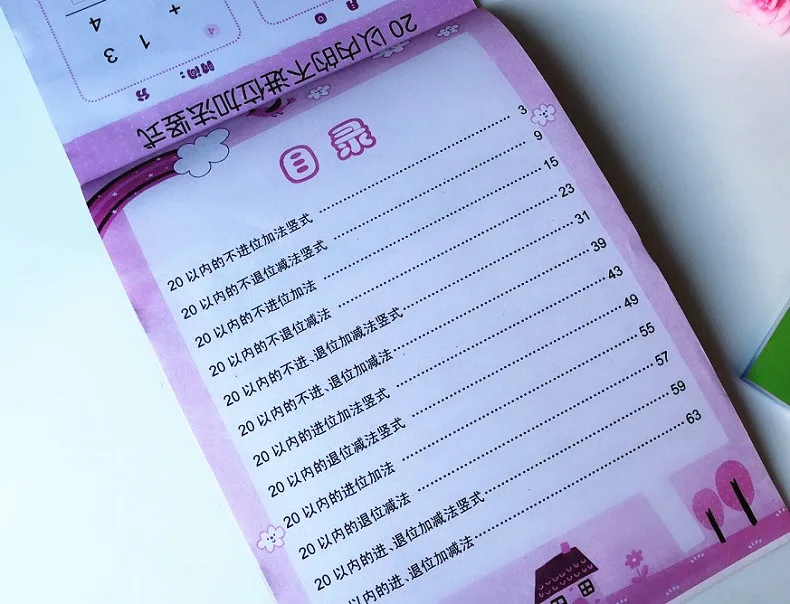 4
1 3
+ 4
时间: 分
20 以内的不进位加法竖式
目录
20 以内的不进位加法竖式 3
20 以内的不退位减法竖式 9
20 以内的不进位加法 15
20 以内的不退位减法 23
20 以内的不进、退位加减法竖式 31
20 以内的不进、退位加减法 39
20 以内的进位加法竖式 43
20 以内的退位减法竖式 49
20 以内的进位加法 55
20 以内的退位减法 57
20 以内的进、退位加减法竖式 59
以内的进、退位加减法 63